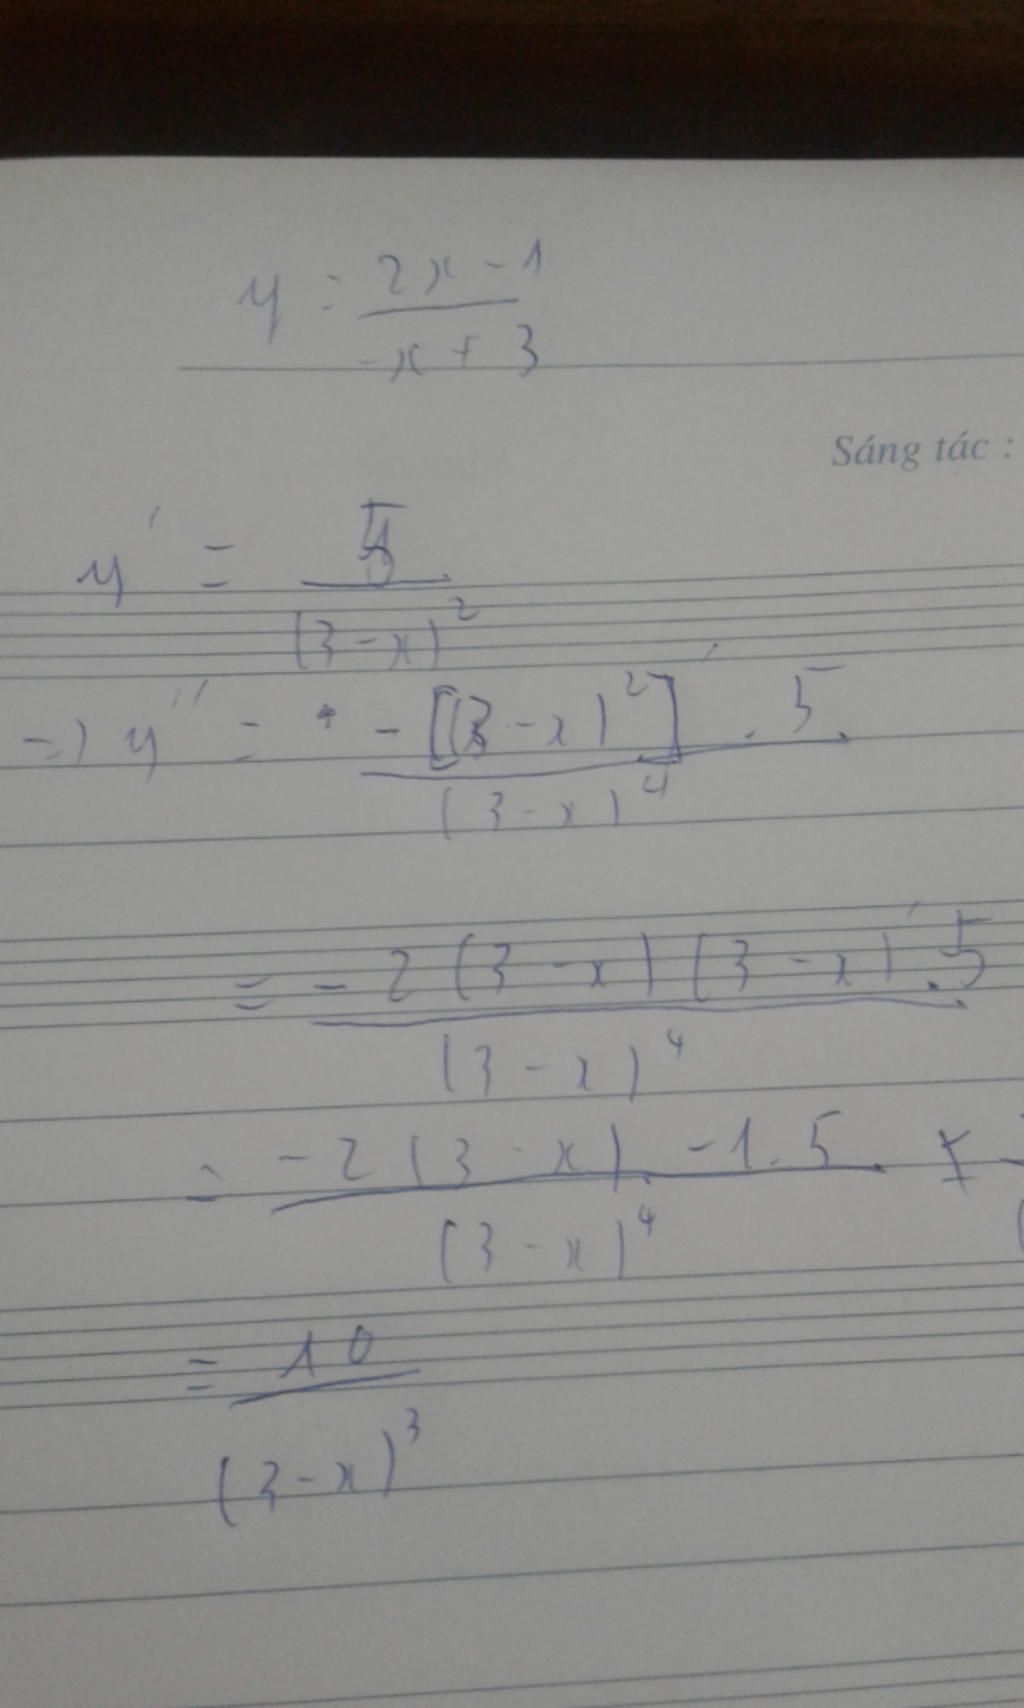 y = 2x - 1
-x + 3
Sáng tác :
y' = 5
(3 - x)²
=) y'' = - [(3 - x)²]' . 5
(3 - x)⁴
= - 2 (3 - x) (3 - x)' . 5
(3 - x)⁴
= - 2 (3 - x) . -1 . 5
(3 - x)⁴
= 10
(3 - x)³